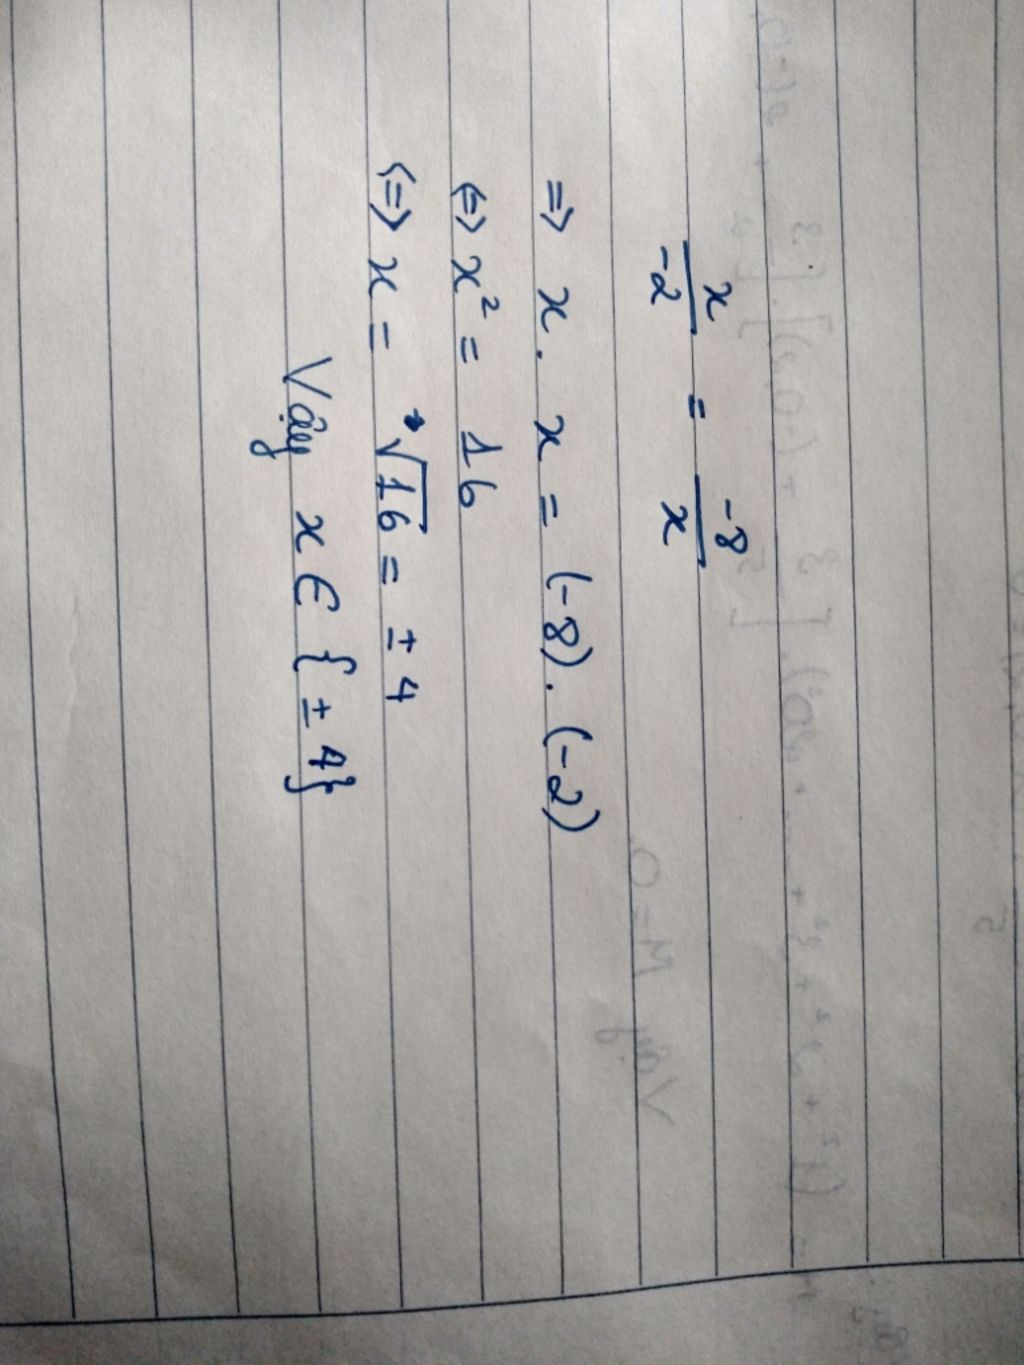 x/-2 = -8/x
=> x . x = (-8) . (-2)
<=> x² = 16
<=> x = √16 = ± 4
Vậy x ∈ {± 4}